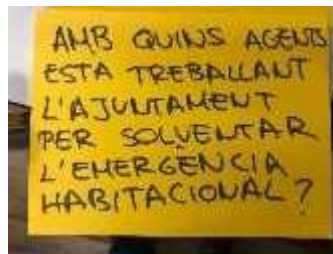 AMB QUINS AGENTS
ESTA TREBALLANT
L'AJUNTAMENT
PER SOLVENTAR
L'EMERGÈNCIA
HABITACIONAL?